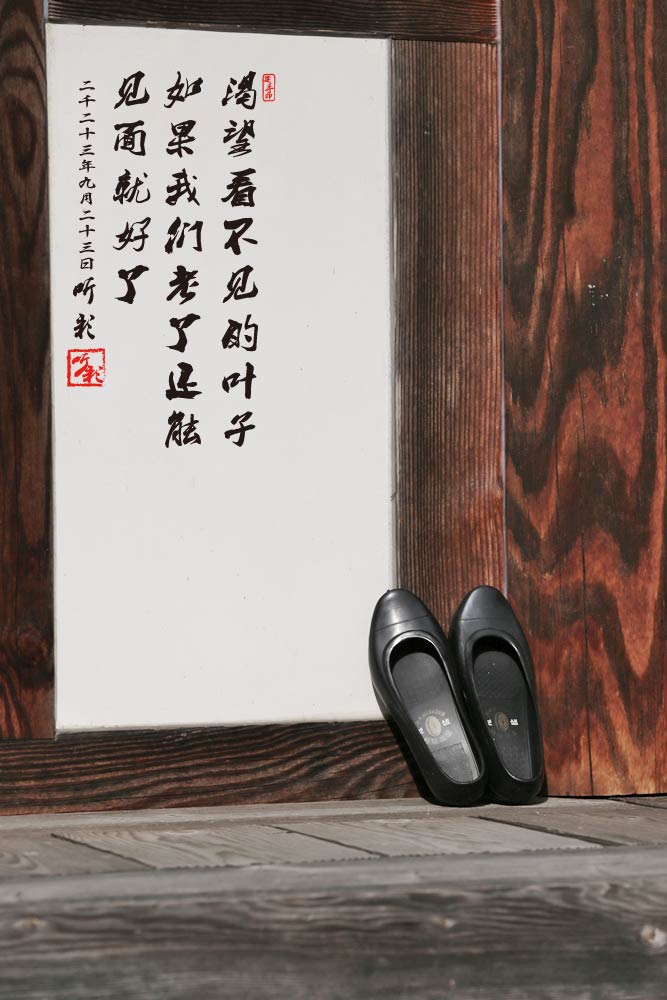 渴望看不见的叶子
如果我们老了还能
见面就好了
二千二十三年九月二十三日听彩
听彩